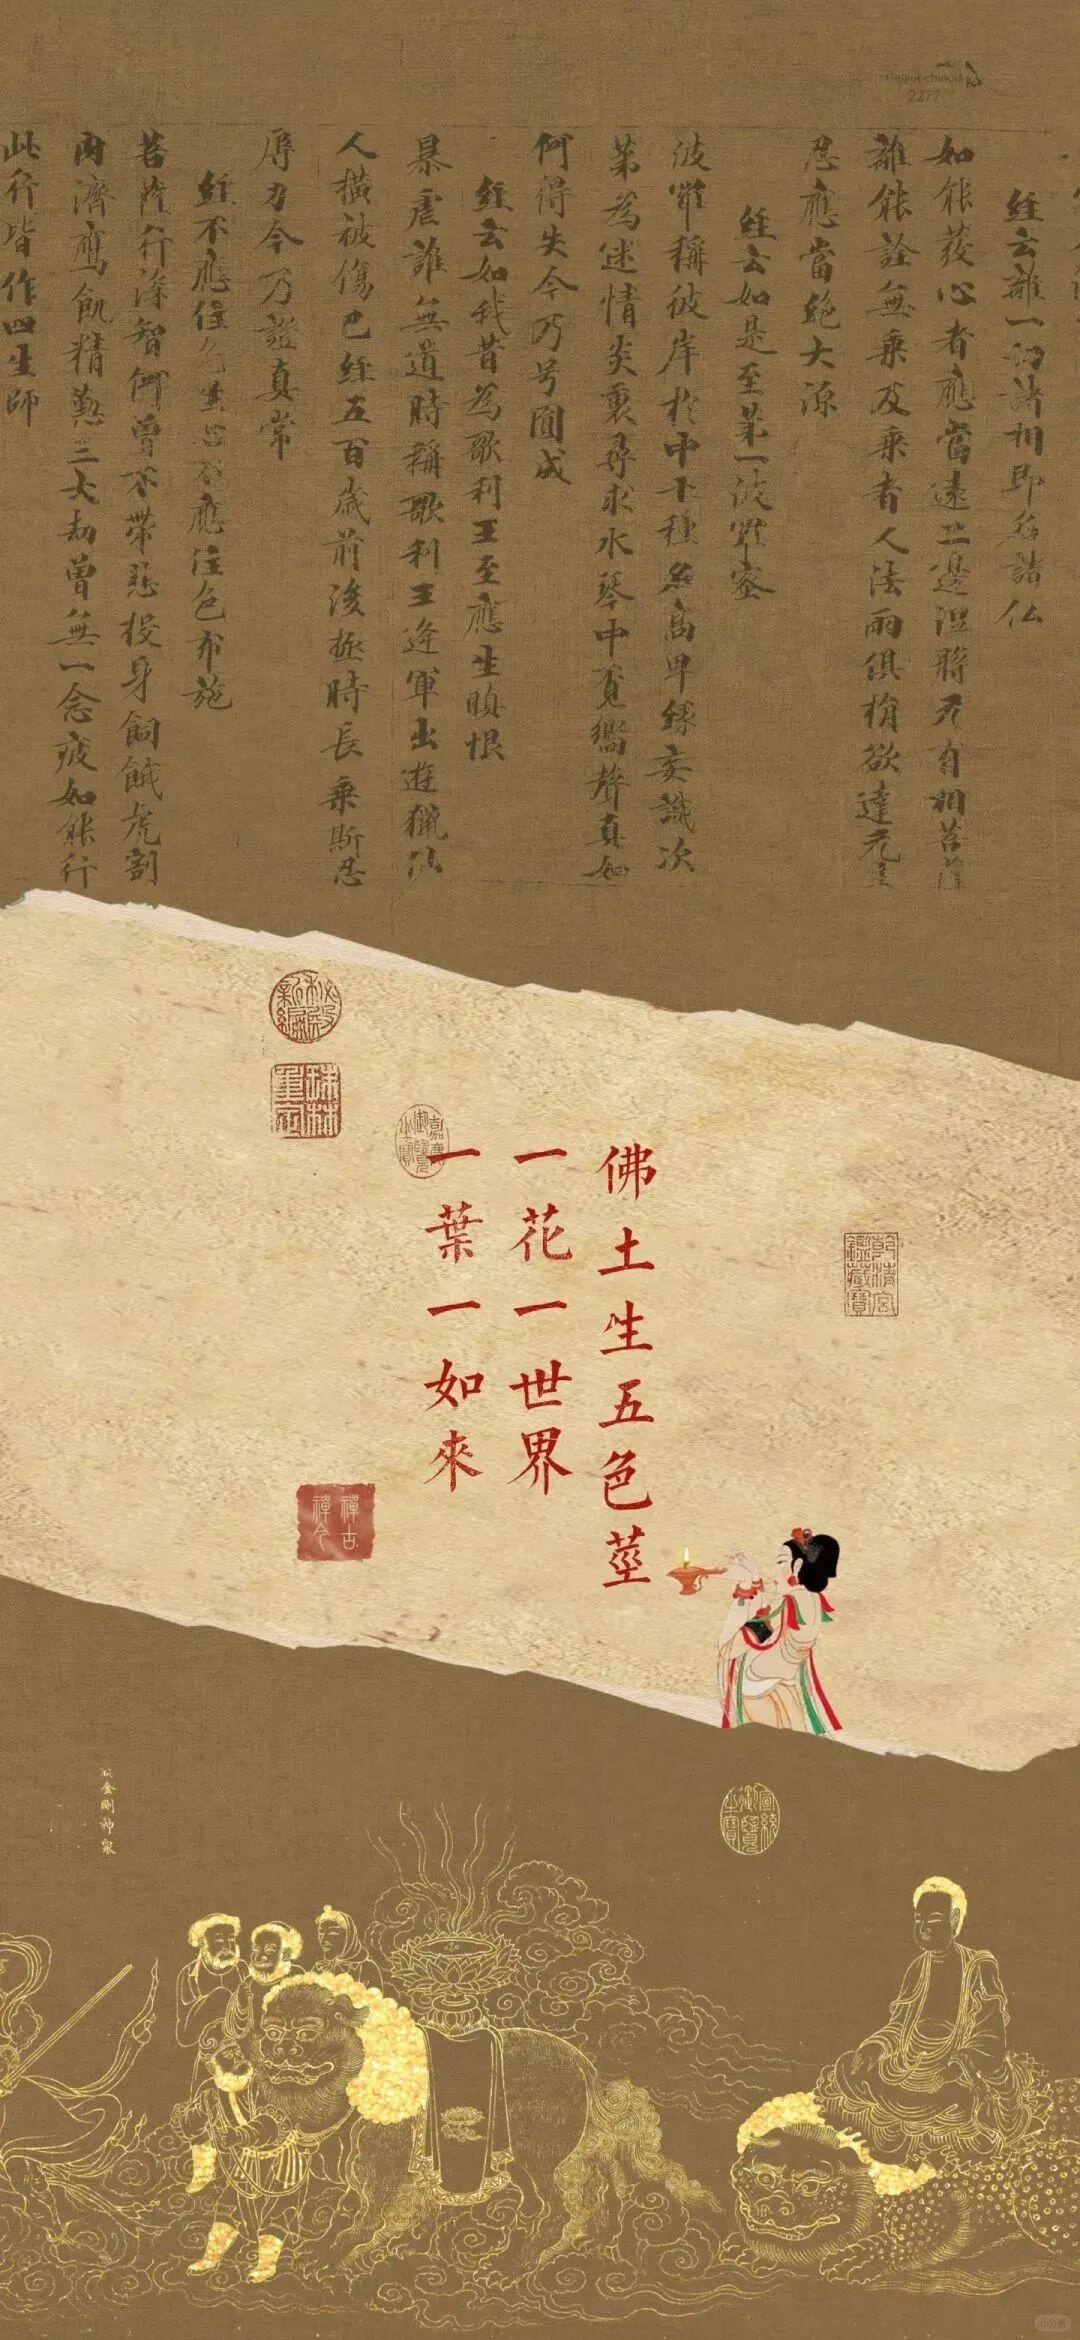 Pelliot chinois
經云離一切諸相即名諸仏
如能發心者應當遠二邊涅槃无有相菩薩
離能詮無乘及乘者人法兩俱捐欲達元
忍應當絕大源
經云如是至第一波罗蜜
波罗稱彼岸於中十種名高卑緣妄識次
第為迷情炎裏尋求水琴中覓嚮聲真如
何得失今乃号圓成
經云如我昔為歌利王至應生瞋恨
暴虐誰無道時稱歌利王逢軍出遊獵仙
人橫被傷已經五百歲前後極時長乘斯忍
辱力今乃證真常
經不應住色生心不應住色布施
菩薩行深智何曾不帶悲投身飼餓虎割
肉濟鷹飢精懃三大劫曾無一念疲如能行
此行皆作四生師
秘殿新編
珠林重定
嘉慶御覽之寶
佛土生五色莖
一花一世界
一葉一如來
乾清宮鑑藏寶
禪古禪今
宣統御覽之寶
金剛神眾